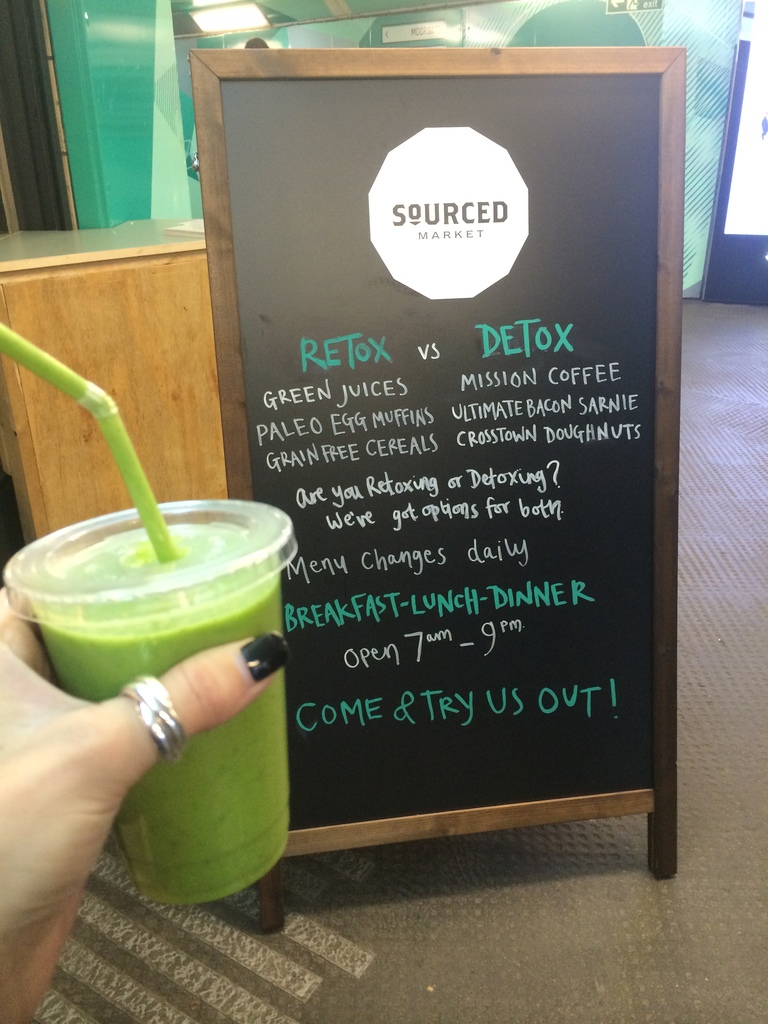 exit
SOURCED
MARKET
RETOX vs DETOX
GREEN JUICES MISSION COFFEE
PALEO EGG MUFFINS ULTIMATE BACON SARNIE
GRAIN FREE CEREALS CROSSTOWN DOUGHNUTS
are you Retoxing or Detoxing?
we've got options for both.
Menu changes daily
BREAKFAST-LUNCH-DINNER
open 7am - 9pm.
COME & TRY US OUT!